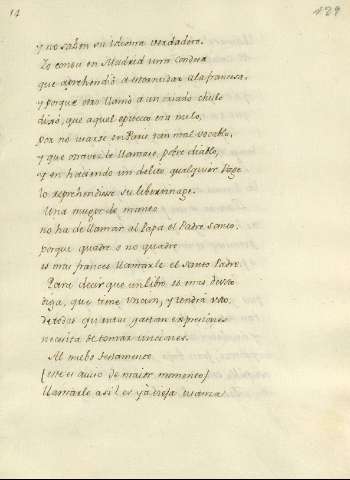 14
429
y no saben su idioma verdadero.
Yo conoci en Madrid una Condesa
que aprehendiò a estornudar a la francesa,
y porque otro llamò a un criado chulo
dixo, que aquel epitecto era nulo,
por no usarse en Paris tan mal vocablo,
y que otra vez le llamase pobre diablo,
y en haciendo un delito qualquier Page
lo reprehendiese su libertinage.
Una muger de manto
no ha de llamar al Papa el Padre Santo,
porque quadre o no quadre
es mas frances llamarle el Santo Padre.
Para decir que un libro es mui devoto
diga, que tiene Uncion, y tendrà
de todas quantas gastan expresiones
necesita de tomar unciones.
Al nuebo testamento
(este es aviso de maior momento)
llamarle asi es ya vieja usanza